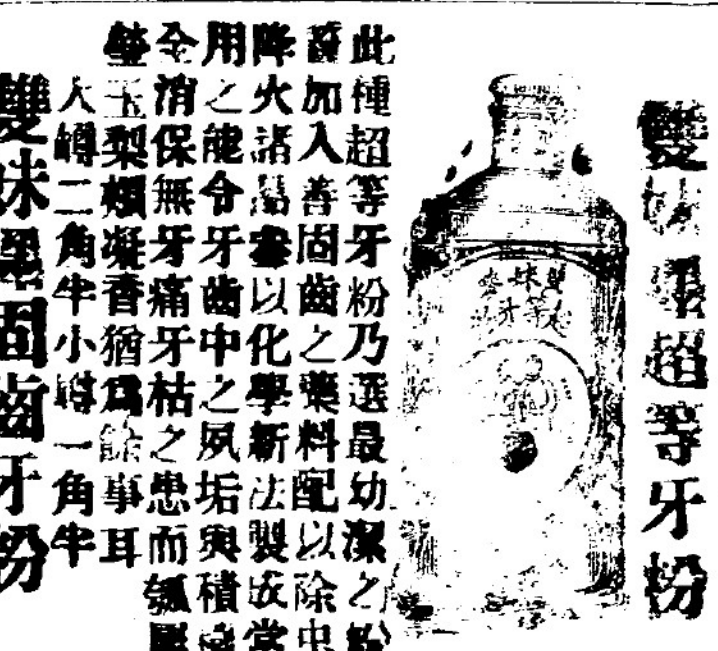 雙妹嘜超等牙粉
雙妹嘜
超等牙粉
此種超等牙粉乃選最幼潔之粉
加入善固齒之藥料配以除虫
降火諸品以化學新法製成常
用之能令牙齒中之夙垢與積
全消保無牙痛牙枯之患而瓠犀
瑩玉梨頰凝香猶爲餘事耳
大罇二角半小罇一角半
雙妹嘜固齒牙粉